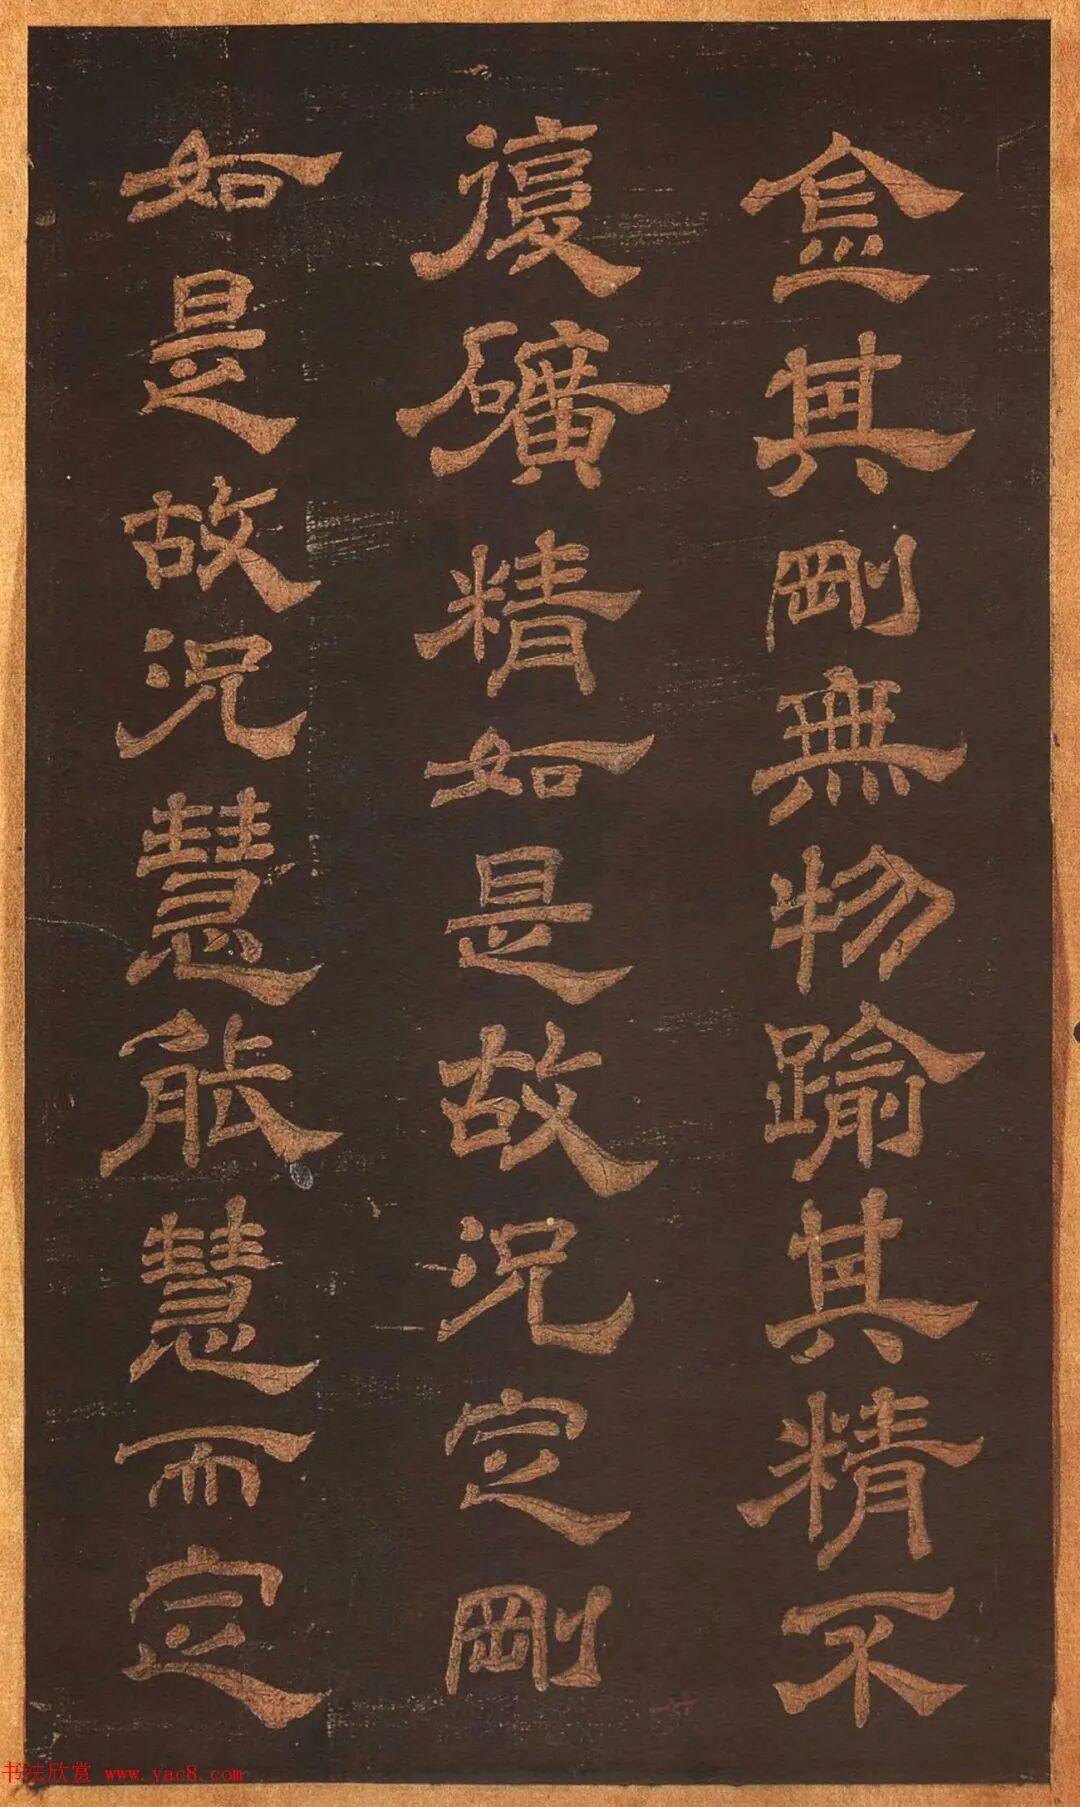 金其剛無物踰其精不
復礦精如是故況定剛
如是故況慧能慧而定
书法欣赏 www.yac8.com